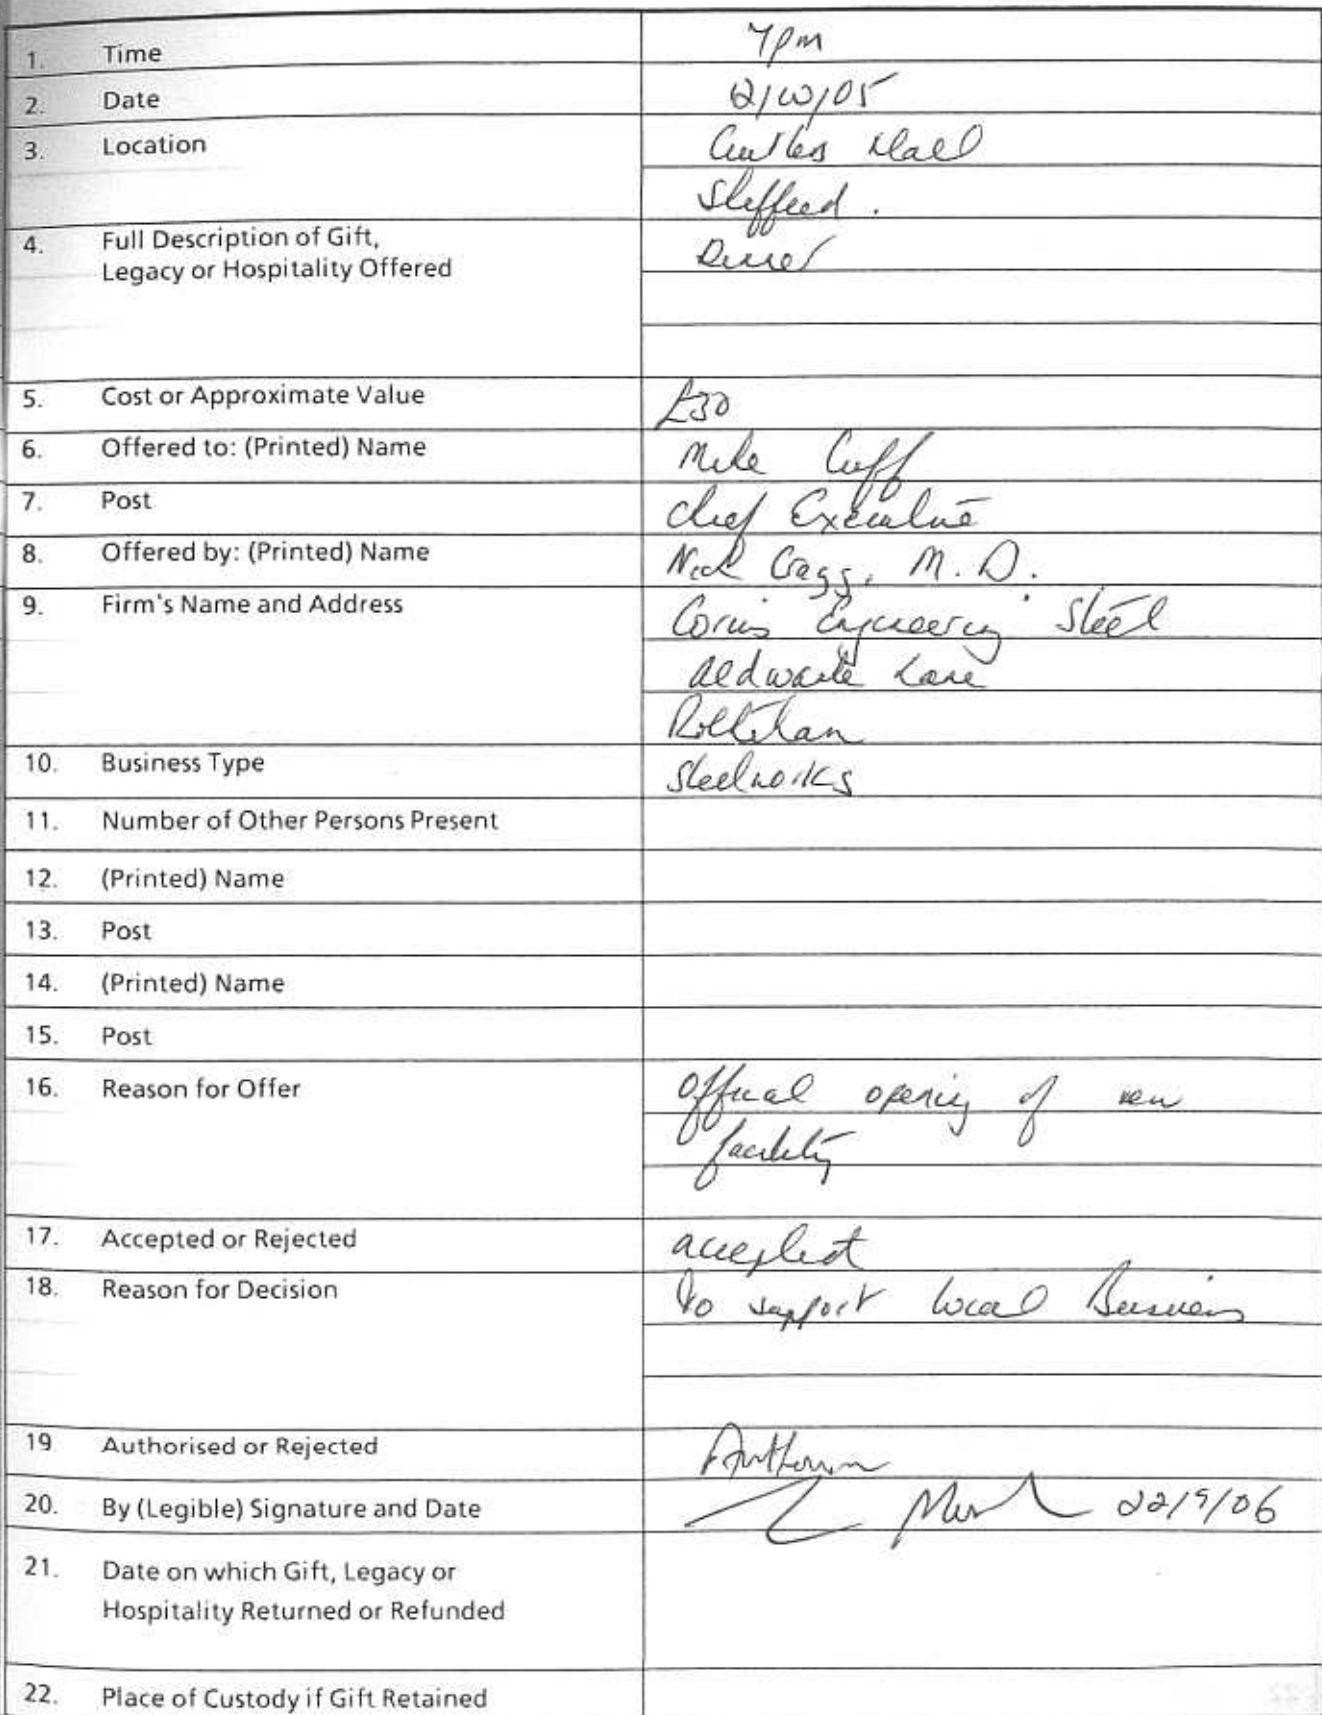 1. Time 7pm
2. Date 12/10/05
3. Location Cutlers Hall
Sheffield.
4. Full Description of Gift, Dinner
Legacy or Hospitality Offered
5. Cost or Approximate Value £30
6. Offered to: (Printed) Name Mike Cuff
7. Post Chief Executive
8. Offered by: (Printed) Name Nick Cragg, M.D.
9. Firm's Name and Address Corus Engineering Steel
Aldwarke Lane
Rotherham
10. Business Type Steelworks
11. Number of Other Persons Present
12. (Printed) Name
13. Post
14. (Printed) Name
15. Post
16. Reason for Offer Official opening of new
facility
17. Accepted or Rejected accepted
18. Reason for Decision to support local Business
19 Authorised or Rejected
20. By (Legible) Signature and Date 22/9/06
21. Date on which Gift, Legacy or
Hospitality Returned or Refunded
22. Place of Custody if Gift Retained